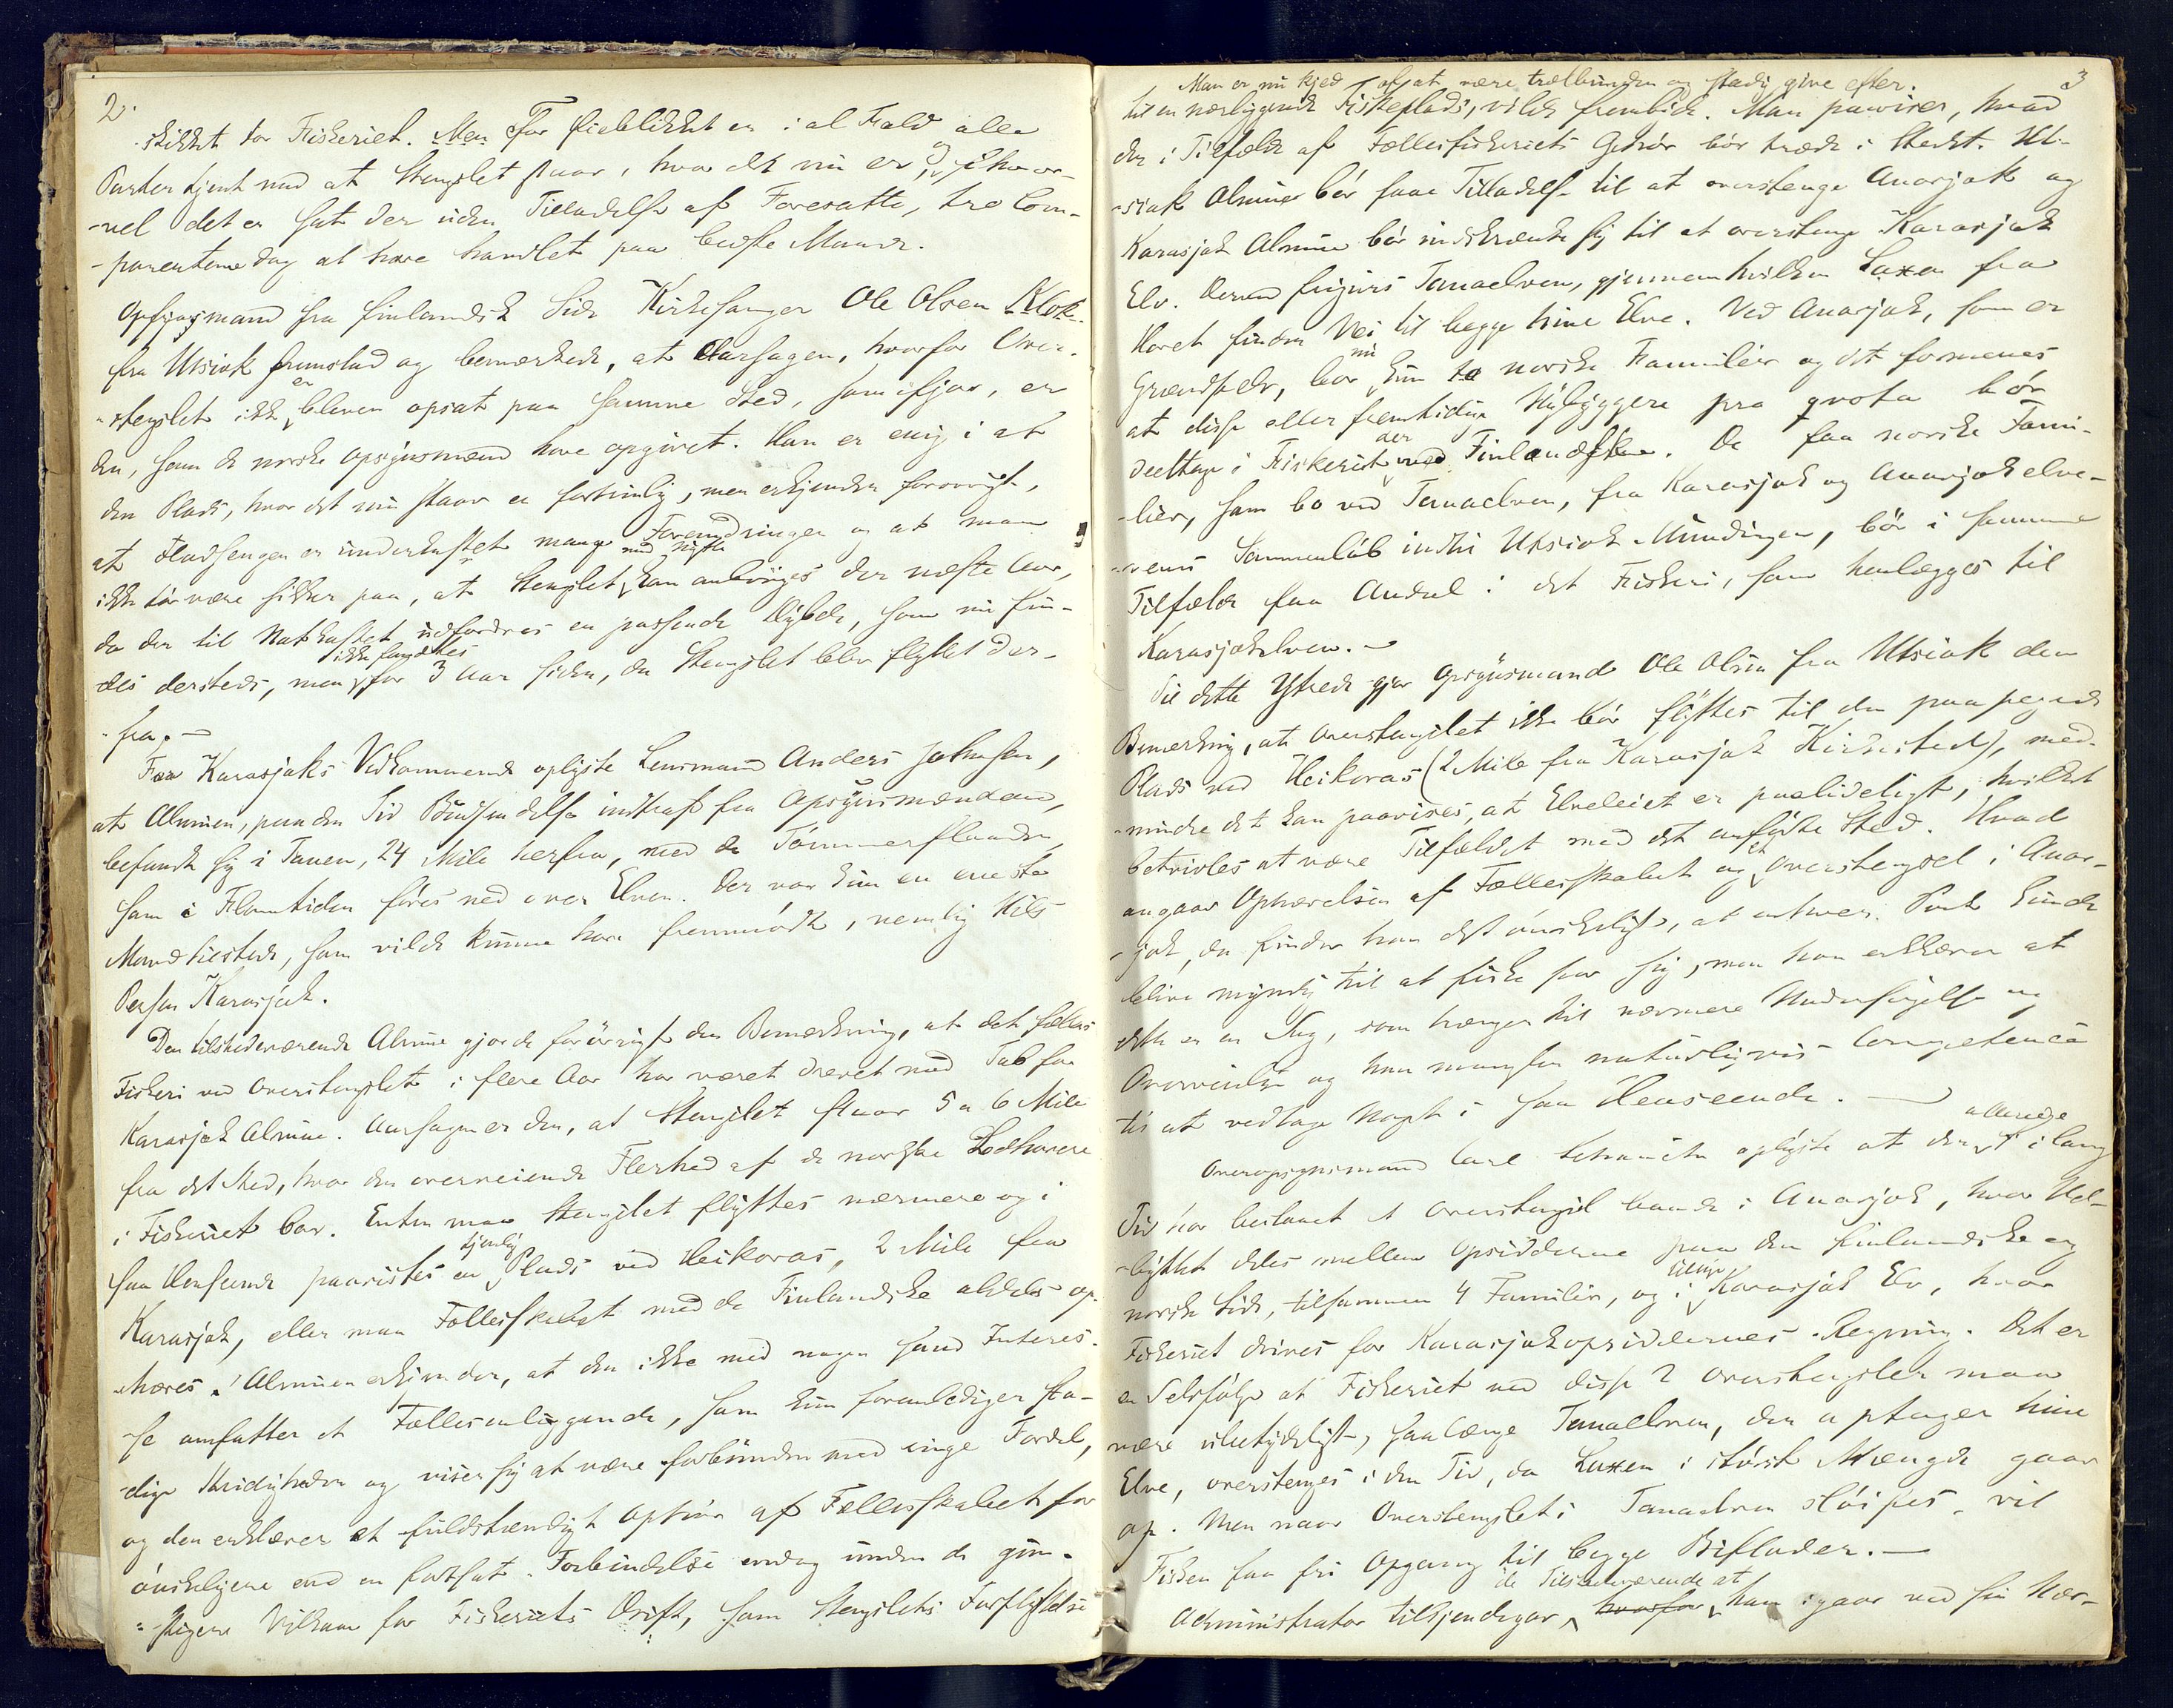 2.
skikket for Fiskeriet. Men For Øieblikket er i al Fald alle
Parter tjent med at Stengslet staar, hvor det nu er, og ihvor-
-vel det er sat der uden Tilladelse af Foresatte, tro Com-
-parenterne dog at have handlet paa bedste Maade.
Opsynsmand fra finlandsk Side Kirkesanger Ole Olsen
fra Utsjok fremstod og bemærkede, at Aarsagen, hvorfor Over-
-stengslet ikke er bleven opsat paa samme Sted, som ifjor, er
den, som de norske Opsynsmænd have opgivet. Han er enig i at
den Plads, hvor det nu staar er fortrinlig, men erkjender forøvrigt,
at Flodsengen er underkastet mange Forandringer og at man
ikke tør være sikker paa, at Stengslet med Nytte kan anbringes der næste Aar,
da der til Notkastet udfordres en passende Dybde, som nu fin-
des dersteds, men ikke fandtes for 3 Aar siden, da Stengslet blev flyttet der-
-fra. —
For Karasjoks Vedkommende oplyste Lensmand Anders Johnsen,
at Almuen, paa den Tid Budsendelse indtraf fra Opsynsmændene,
befandt sig i Tanen, 24 Mile herfra, med de Tømmerflaader,
som i Flomtiden føres ned over Elven. Der var kun en eneste
Mand tilstede, som vilde kunne have fremmødt, nemlig Nils
Persen Karasjok.
Den tilstedeværende Almue gjorde forøvrigt den Bemærkning, at det fælles
Fiskeri ved Overstengslet i flere Aar har været drevet med Tab for
Karasjok Almue. Aarsagen er den, at Stengslet staar 5 a 6 Mile
fra det Sted, hvor den overveiende Flerhed af de norske Lodhavere
i Fiskeriet bor. Enten maa Stengslet flyttes nærmere og i
saa Henseende paavistes en tjenlig Plads ved Heikoras, 2 Mile fra
Karasjok, eller maa Fællesskabet med de Finlandske aldeles op-
-hæves. Almuen erkjender, at den ikke med nogen sand Interes-
se omfatter et Fællesanliggende, som kun foranlediger sta-
-dige Stridigheder og viser sig at være forbunden med ringe Fordel,
og den erklærer et fuldstændigt Ophør af Fællesskabet for
ønskeligere end en fortsat Forbindelse endog under de gun-
-stigere Vilkaar for Fiskeriets Drift, som Stengslets Forflyttelse
3
Man er nu kjed af at være trælbunden og stadig give efter.
til en nærliggende Fiskeplads, vilde frembyde. Man paaviser, hvad
der i Tilfælde af Fællesfiskeriets Ophør bør træde i Stedet. Ut-
-sjok Almue bør faae Tilladelse til at overstenge Anarjok og
Karasjok Almue bør indskrænke sig til at overstenge Karasjok
Elv. Derved frigives Tanaelven, gjennem hvilken Laxen fra
Havet finder Vei til begge hine Elve. Ved Anarjok, som er
Grændseelv, bor nu kun to norske Familier og det formenes
at disse eller fremtidige Nybyggere pro qvota bør
deeltage i Fiskeriet der med Finlændserne. De faa norske Fami-
-lier, som bo ved Tanaelven, fra Karasjok og Anarjokelve-
-nens Sammenløb indtil Utsjok-Mundingen, bør i samme
Tilfælde faa Andel i det Fiskeri, som henlægges til
Karasjokelven. —
Til dette Ytrede gjør Opsynsmand Ole Olsen fra Utsjok den
Bemærkning, at Overstengslet ikke bør flyttes til den paapegede
Plads ved Heikoras (2 Mile fra Karasjok Kirkested), med-
-mindre det kan paavises, at Elveleiet er paalideligt, hvilket
betvivles at være Tilfældet med det anførte Sted. Hvad
angaar Ophævelsen af Fællesskabet og et Overstengsel i Anar-
-jok, da finder han det ønskeligt, at enhver Part kunde
blive myndig til at fiske for sig, men han erklærer at
dette er en Sag, som trænger til nærmere Undersøgelse og
Overveielse og han mangler naturligviis Competence
til at vedtage Noget i saa Henseende. —
Overopsynsmand Carl oplyste at der allerede i lang
Tid har bestaaet et Overstengsel baade i Anarjok, hvor Ud-
-byttet deles mellem Opsidderne paa den finlandske og
norske Side, tilsammen 4 Familier, og i tillige Karasjok Elv, hvor
Fiskeriet drives for Karasjokopsiddernes Regning. Det er
en Selvfølge at Fiskeriet ved disse 2 Overstengsler maa
være ubetydeligt, saalænge Tanaelven, der optager hine
Elve, overstenges i den Tid, da Laxen i størst Mængde gaar
op. Men naar Overstengslet i Tanaelven sløifes, vil
Fisken faa fri Opgang til begge Bifloder. —
Administrator tilkjendegav de Tilstedeværende at hvorfor han igaar ved sin Nær-